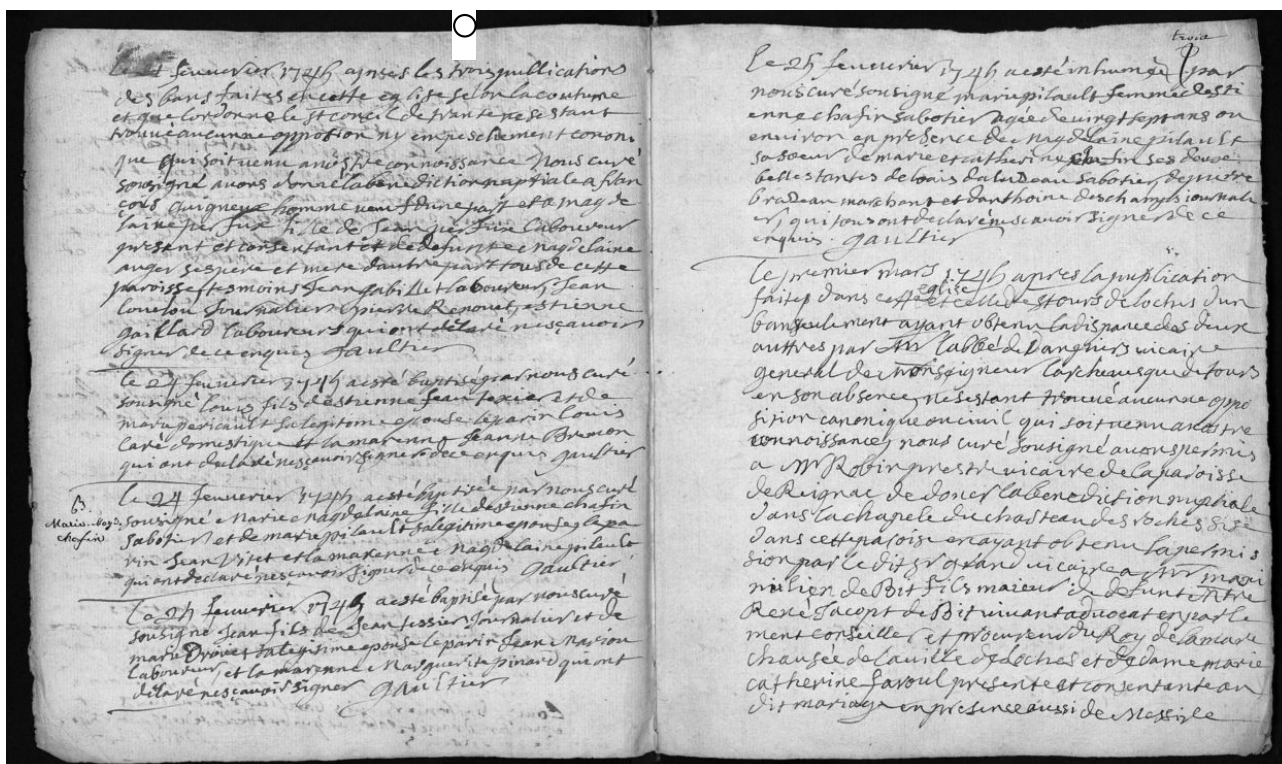 feuverier 1745 apres les trois publications
des bans faites en cette eglise selon la coutume
et que lordonne le st concil de trante ne sestant
trouvé aucunne opposition ny empeschement canoni
que qui soit venu a nostre connoissance Nous curé
sousigné avons donné la benediction nuptiale a fran
cois Guigneux homme veuf dune part et a magde
laine fille de Jean laboureur
present et consentant et de defunte Magdelaine
auger ses pere et mere dautre part tous de cette
paroisse temoins Jean Gabillet laboureur, Jean
Loulou Journalier, pierre Renouet, estienne
Gaillard laboureurs qui ont declaré ne sçavoir
signer de ce enquis Gaultier
Le 24 feuverier 1745 a esté baptisé par nous curé
sousigné Louis fils destienne Jean texier et de
marie pericault sa legitime epouse le parin Louis
Caré domestique et la marenne Jeanne Bremon
qui ont declaré ne sçavoir signer de ce enquis Gaultier
B.
Marie-Magd.
chafin
Le 24 feuverier 1745 a esté baptisée par nous curé
sousigné Marie Magdelaine fille destienne chafin
Sabotier et de marie pilault sa legitime epouse, le pa
rin Jean Vitet et la marenne Magdelaine pilault
qui ont declaré ne scavoir signer de ce enquis Gaultier
Le 25 feuverier 1745 a esté baptisé par nous curé
sousigné Jean fils de Jean tessier Journalier et de
marie Drouet sa legitime epouse le parin Jean Marion
Laboureur, et la marenne Marguerite pinard qui ont
déclaré ne sçavoir signer Gaultier
trois
Le 25 feuverier 1745 a esté inhumée par
nous curé sousigné marie pilault femme desti
enne chafin sabotier agée de vingt sept ans ou
environ en presence de Magdelaine pilault
sa soeur de marie et catherine chafin ses deux
belles tantes de Louis daludeau sabotier, de pierre
bradeau marchant et danthoine deschamps journali
er, qui tous ont declaré ne scavoir signer de ce
enquis. Gaultier
Le premier mars 1745 apres la publication
faite dans cette eglise et celle de st ours de loches dun
ban seulement ayant obtenu la dispance des deux
auttres par Mr labbé de Dangviers vicaire
general de monseigneur larchevesque de tours
en son absence, ne sestant trouvé aucunne oppo
sition canonique ou civil qui soit venu a nostre
connoissance, nous curé sousigné avons permis
a Mr Robin prestre vicaire de la paroisse
de Reignac de doner la benediction nuptiale
dans la chapele du chasteau des roches
dans cette paroise en ayant obtenu la permis
sion par le dit sr grand vicaire a Mr maxi
milien de Bit fils majeur de defunt Mtre
René Jacopt de Bit vivant advocat en parle
ment conseiller, et procureur du Roy de la mare
chausée de la ville de Loches et de dame marie
catherine faroul presente et consentante au
dit mariage en presence aussi de Messire